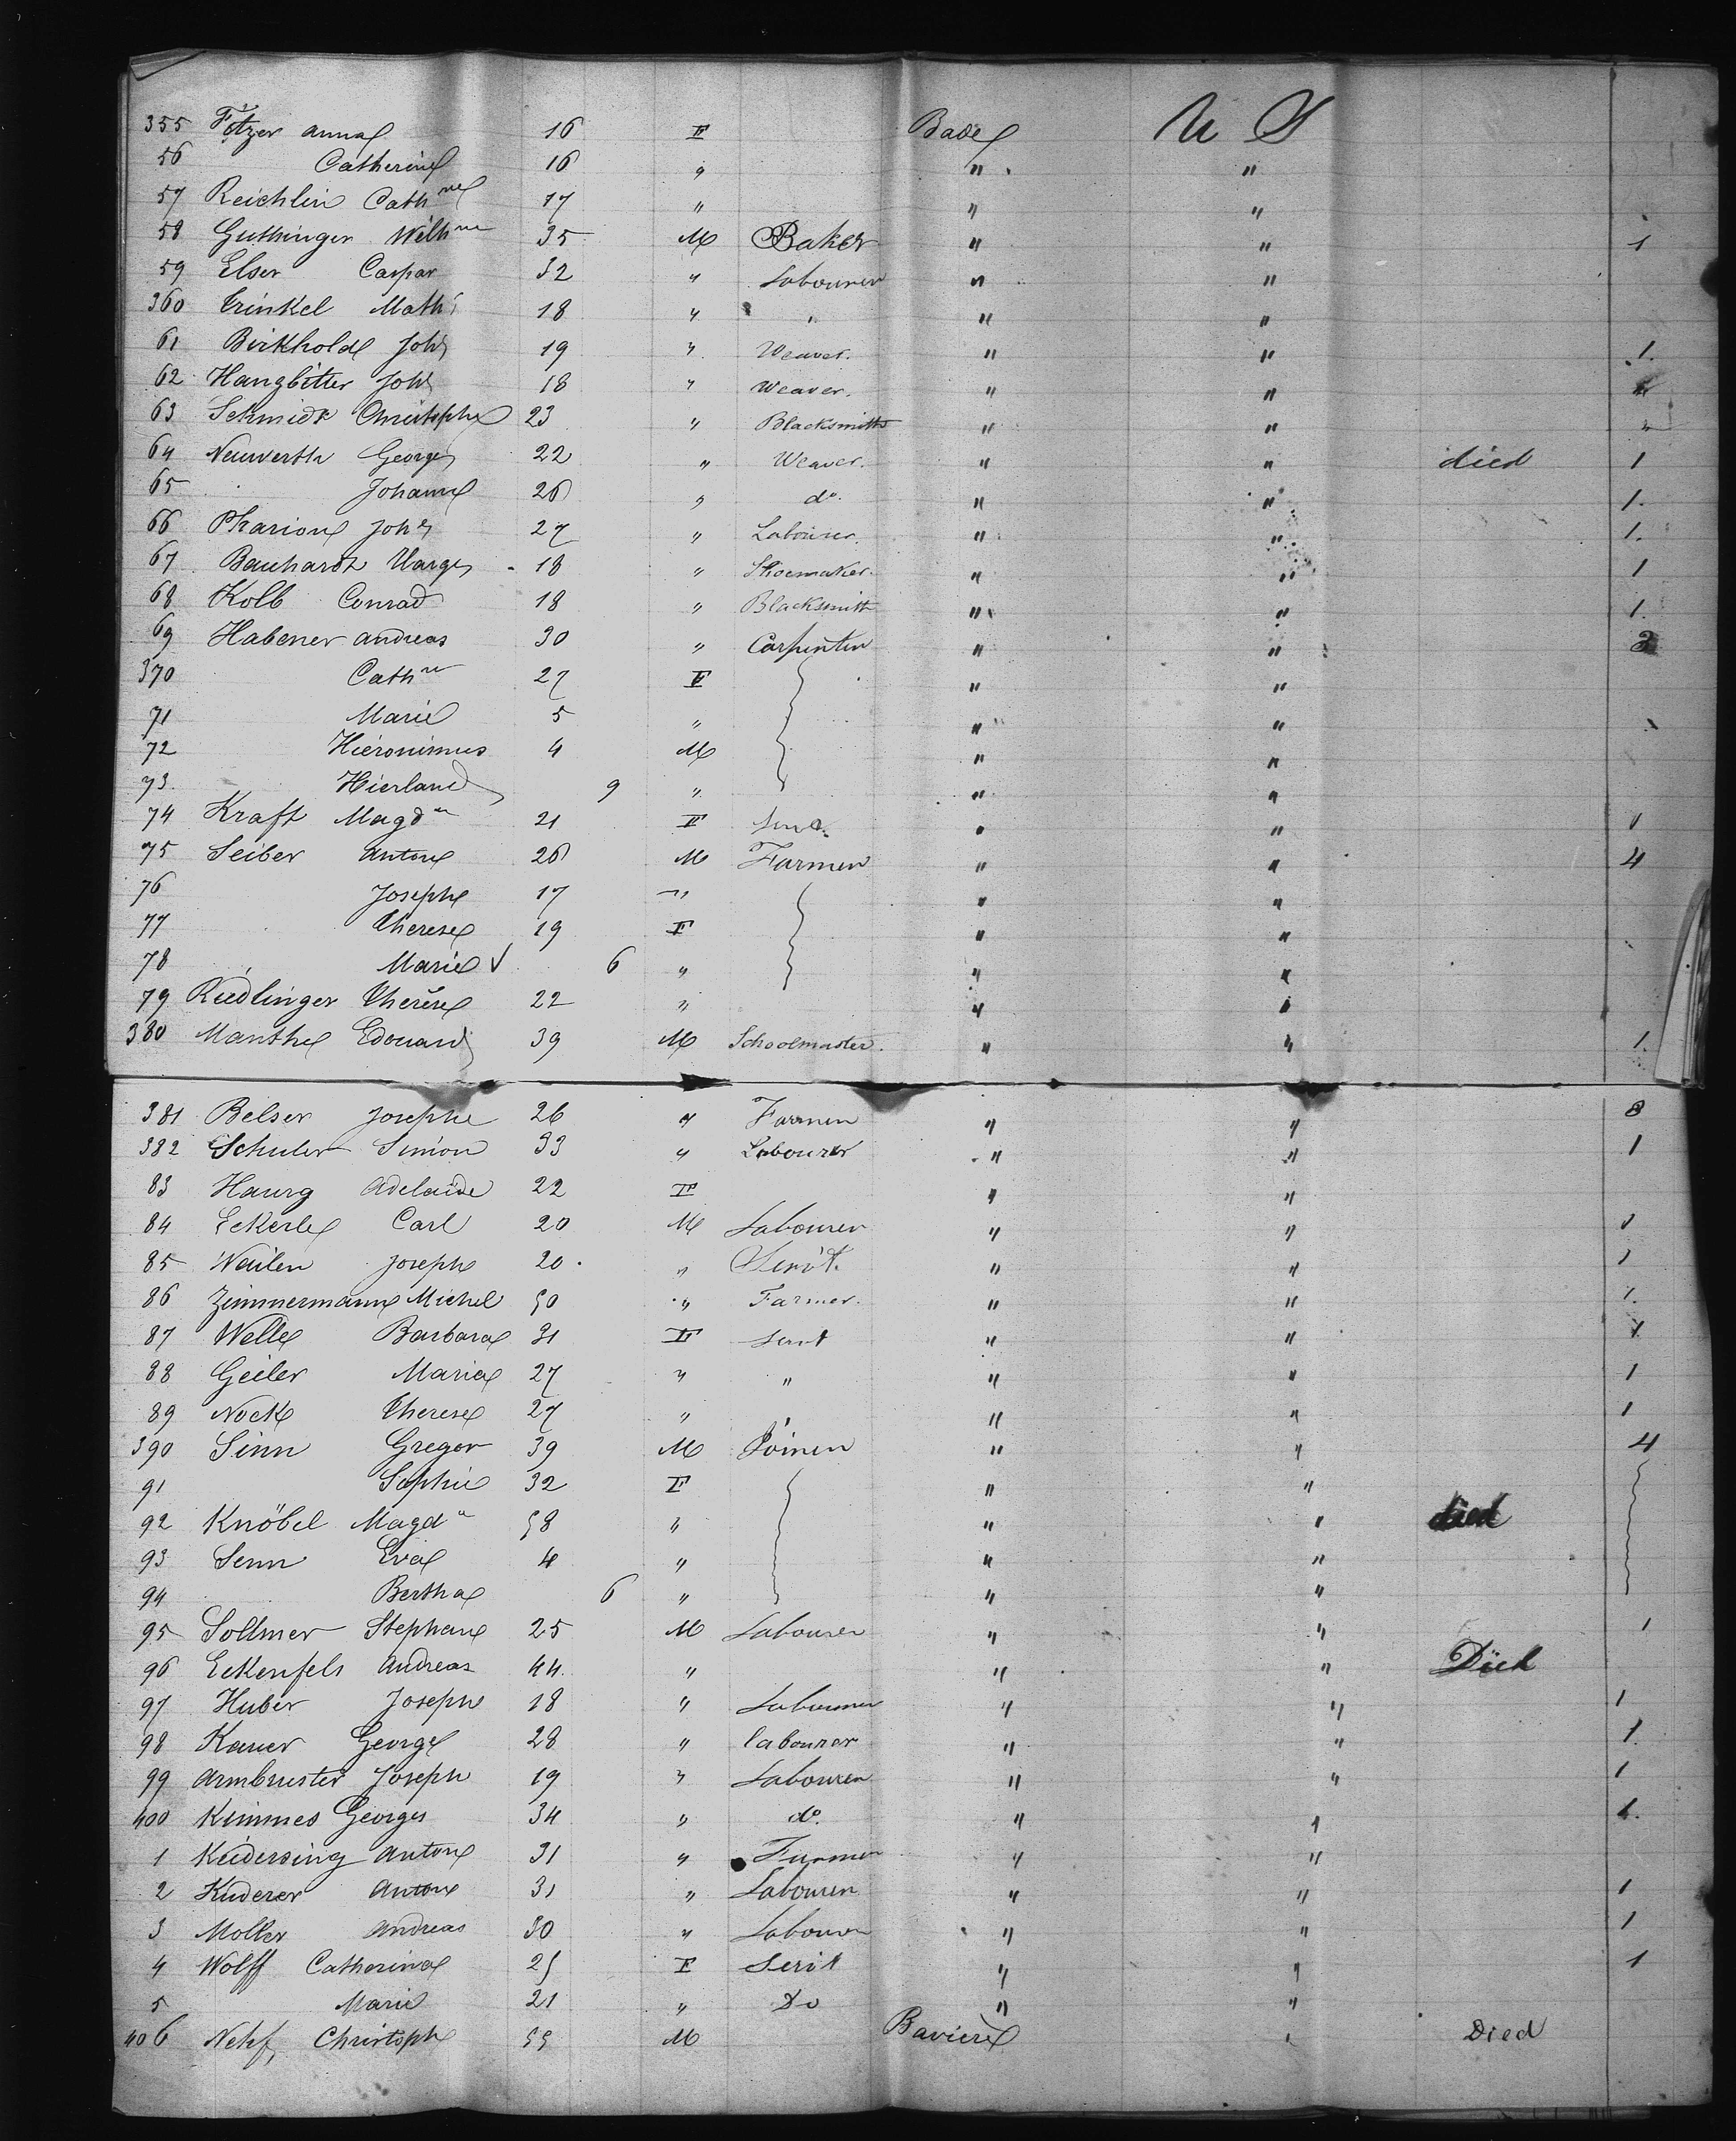 355 Fetzer Anna 16 F Bade U S
56 Catherine 16 " " "
57 Reichlin Cath ne 17 " " "
58 Guthinger Wilh me 35 M Baker " " 1
59 Elser Caspar 32 " Labourer " "
360 Trinkel Math s 18 " " " "
61 Birkhold Joh s 19 " Weaver. " " 1.
62 Hangbitter Joh s 18 " Weaver. " "
63 Schmidt Christophe 23 " Blacksmith " " "
64 Neuwerth Georges 22 " Weaver. " " died 1
65 Johanne 26 " do. " " 1.
66 Pharion Joh s 27 " Labourer. " " 1.
67 Bauhardt 18 " Shoemaker. " " 1
68 Kolb Conrad 18 " Blacksmith " " 1.
69 Habener Andreas 30 " Carpenter " " 3
370 Cath ne 27 F " "
71 Marie 5 " " "
72 Hieronimus 4 M " "
73 9 " " "
74 Kraft Magd a 21 F " " 1
75 Seiber Antone 26 M Farmer " " 4
76 Joseph 17 " " "
77 Therese 19 F " "
78 Marie √ 6 " " "
79 Riedlinger Therese 22 " " "
380 Manthe Edouard 39 M Schoolmaster. " " 1.
381 Belser Joseph 26 " Farmer " " 8
382 Schuler Simon 33 " Labourer " " 1
83 Haurg Adelaide 22 F " "
84 Eckerle Carl 20 M Labourer " " 1
85 Weiler Joseph 20 " Serv't. " " 1
86 Zimmermann Michel 50 " Farmer. " " 1.
87 Welle Barbara 31 F Servt " " 1
88 Geiler Maria 27 " " " " 1
89 Nock Therese 27 " " " " 1
390 Sinn Gregor 39 M Joiner " " 4
91 Sophie 32 F " "
92 Knöbel Magd a 58 " " " died
93 Senn Eva 4 " " "
94 Bertha 6 " " "
95 Sollmer Stephan 25 M Labourer " " 1
96 Eckenfels Andreas 44 " " " Died
97 Huber Joseph 18 " Labourer " " 1
98 Kauer George 28 " labourer " " 1.
99 Armbruster Joseph 19 " Labourer " " 1
400 Kimmes Georges 34 " do. " " 1.
1 Keidersing Antone 31 " Farmer " "
2 Kuderer Antone 31 " Labourer " " 1
3 Moller Andreas 30 " Labourer " " 1
4 Wolff Catherina 25 F Serv't " " 1
5 Marie 21 " Do " "
406 Nehf Christoph 55 M Baviere " Died